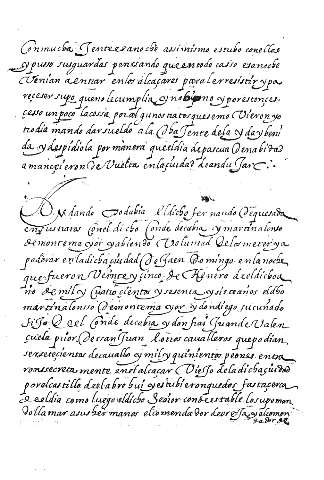 con mucha Jente esa noche assi mismo estubo con ellos
y puso sus guardas pensando que en todo casso esa noche
Venian a entrar en los alcaçares para le rresistir y pa
recer supo que no le cumplia y no bino y por estonces
cesso un poco la cossa por algunos tratos que se mo Vieron y o
tro dia mando dar sueldo a la dha Jente de la yda y beni
da y despidiola por manera que el dia de pascua de nabidad
amanecieron de Vuelta en la çiudad de andujar
Andando todabia el dicho fernando de quesada
en sus tratos con el dicho conde de cabra y martin alonso
de montemayor y abiendo Voluntad de los meter y a
poderar en la dicha ciudad de Jaen Domingo en la noche
que fueron Veinte y cinco de henero de el dicho a
ño de mil y quatrocientos y sesenta y siete años el dho
martin alonso de montemayor y don diego su cuñado
hijo de el conde de cabra y don frai Juan de Valen
çuela prior de san Juan con los cavalleros que podian
ser setecientos de cavallo y mil y quinientos peones entra
ron secretamente en el alcaçar Viejo de la dicha çiudad
por el castillo de el abrehui y estubieron quedos fasta cerca
de el dia como luego el dicho señor condestable lo supo man
do llamar a sus hermanos el comendador de oreja y al comen
dador de